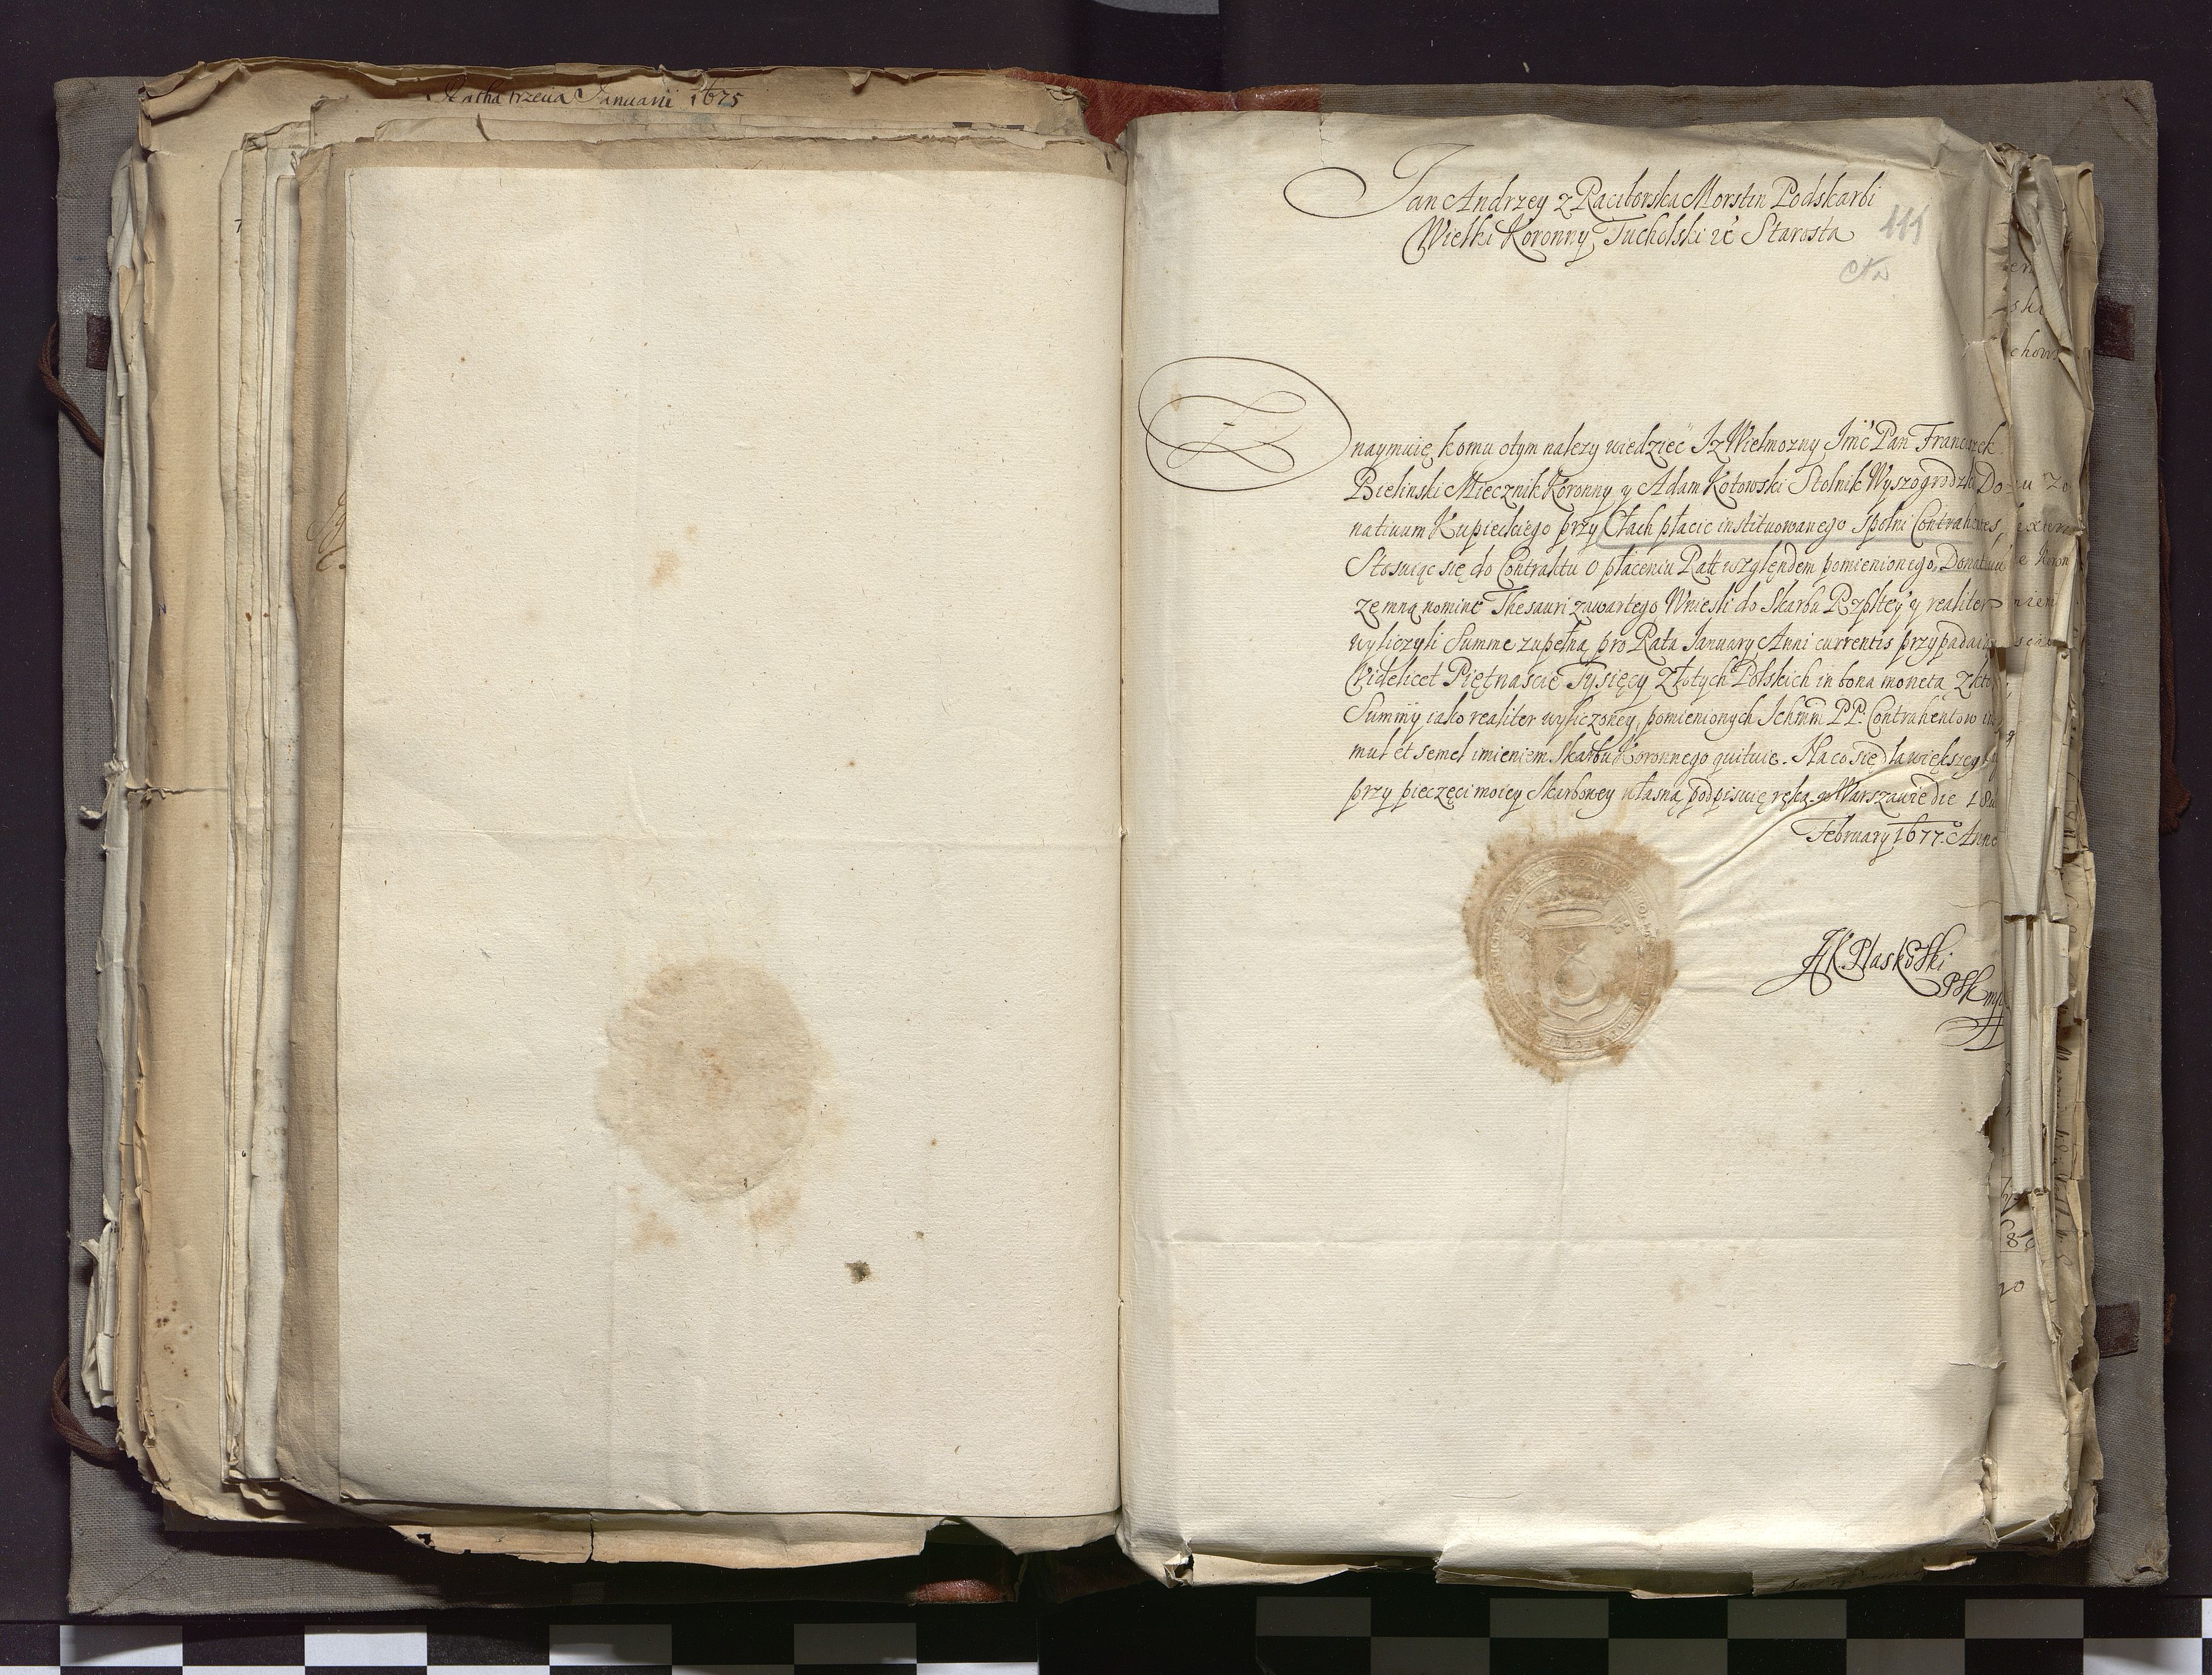 Ratha trzecia Januarii 1675
Jan Andrzey z Raciborska Morstin Podskarbi
Wielki Koronny, Tucholski &c Starosta
111
Znaymuię komu otym nalezy wiedziec Iz Wielmozny Jmc Pan Franciszek
Bielinski Miecznik Koronny y Adam Kotowski Stolnik Wyszogrodzki Do-
natiuum Kupieckiego przy Cłach płacic instituowanego spolni Contrahentes,
Stosuiąc się do Contraktu o płaceniu Ratt względem pomienionego Donatiuu
ze mną nomine Thesauri zawartego Wniesli do Skarbu Rzpltey y realiter
wyliczyli Summe zupełną pro Rata January Anni currentis przypadaią
Videlicet Piętnascie Tysięcy Złotych Polskich in bona moneta z kto
Summy iako realiter wyliczoney, pomienionych Ichmm PP. Contrahentow
mul et semel imieniem Skarbu Koronnego quituie. Na co się dla większey
przy pieczęci moiey Skarbowey własną podpisuię ręką. w Warszawie die 18
February 1677. Anno
JK. Plaskowski
PSK mp